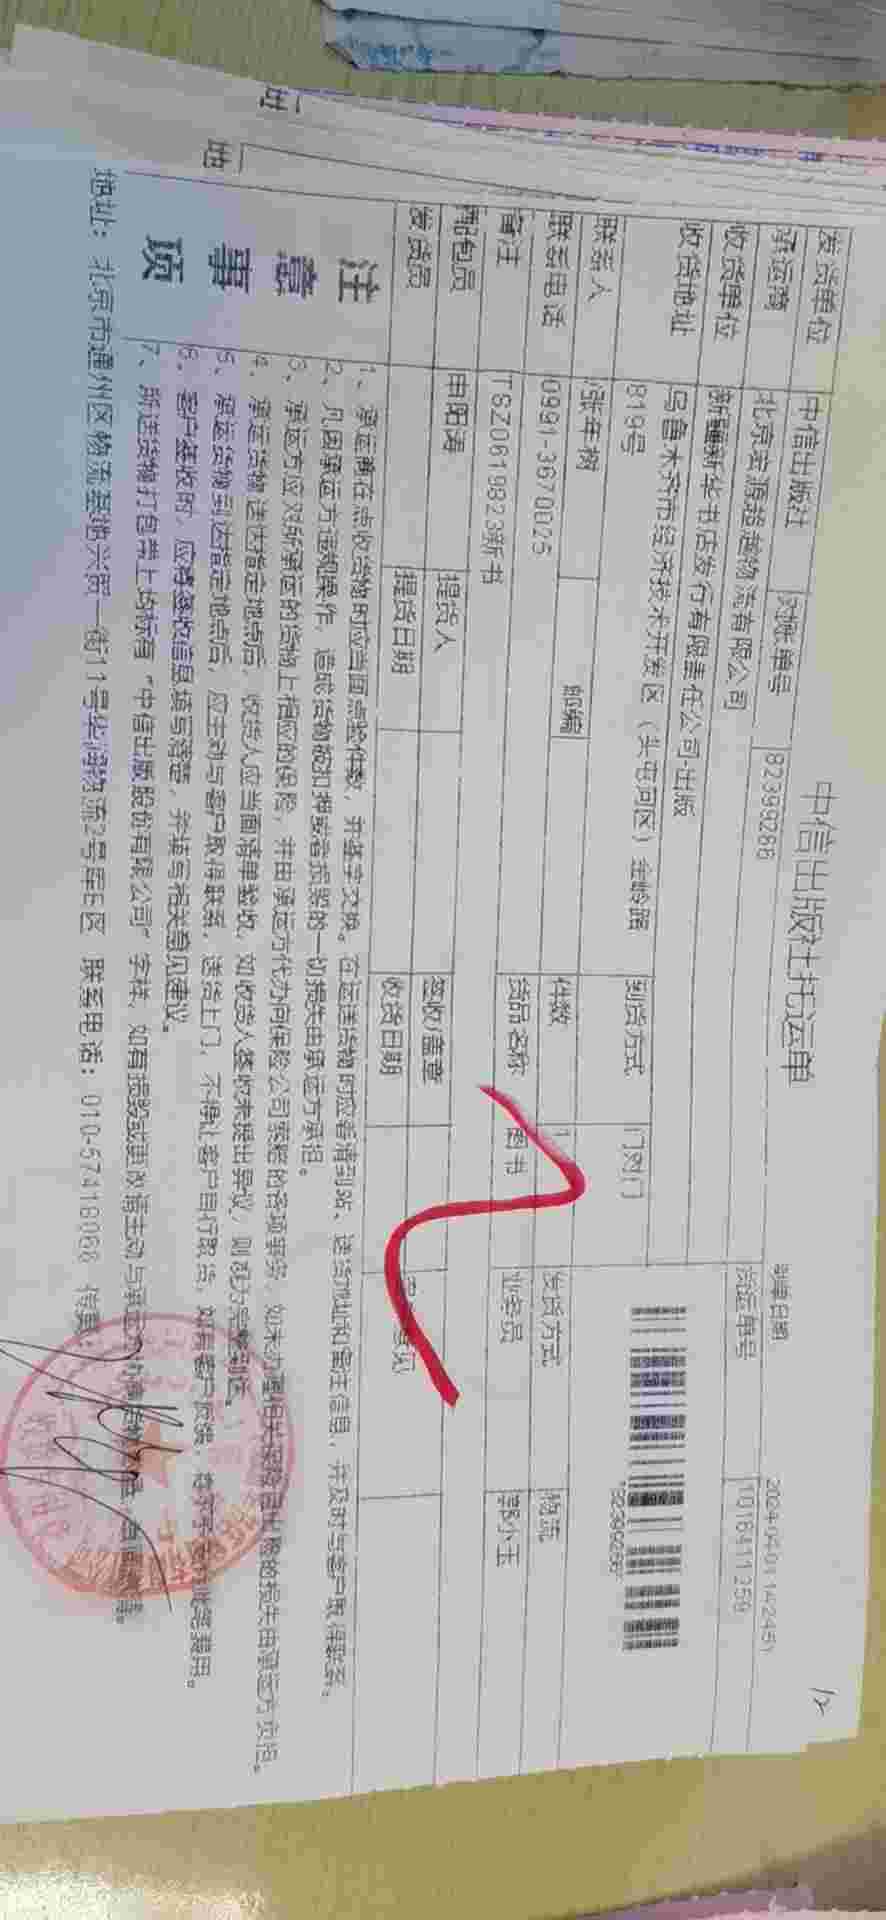 中信出版社托运单
发货单位 中信出版社 对账单号 82399266 到单日期
承运商 北京宏源超越物流有限公司 货运单号 1018411256
收货单位 新疆新华书店发行有限责任公司-出版
收货地址 乌鲁木齐市经济技术开发区(头屯河区)金岭路
819号 到货方式 门对门
联系人 张年树 邮编
联系电话 0991-3670025 件数 1 发货方式 物流
备注 TSZ0619823新书 货品名称 图书 业务员 郭小玉
配包员 田阳涛 提货人 签收/盖章
发货员 提货日期 收货日期
注意事项
1、承运商在点收货物时应当面点验件数,并签字交换。在运送货物时应看清到站、送货地址和货主信息,并及时与客户取得联系。
2、凡因承运方违规操作,造成货物被扣押或者损毁的一切损失由承运方承担。
3、承运方应对所承运的货物上相应的保险,并由承运方代办向保险公司索赔的各项事务,如未办理相关保险而出险的损失由承运方负担。
4、承运货物送达指定地点后,收货人应当面清单验收,如收货人签收未提出异议,则视为完整到达。
5、承运货物到达指定地点后,应主动与客户取得联系,送货上门,不得让客户自行取货,
6、客户签收时,应将签收信息填写清楚,并填写相关意见建议。
7、所送货物打包带上均标有"中信出版股份有限公司"字样,如有损毁或更改请主动与承运方
地址:北京市通州区物流基地兴贸一街11号华润物流2号库E区 联系电话:010-57418066 传真:
12